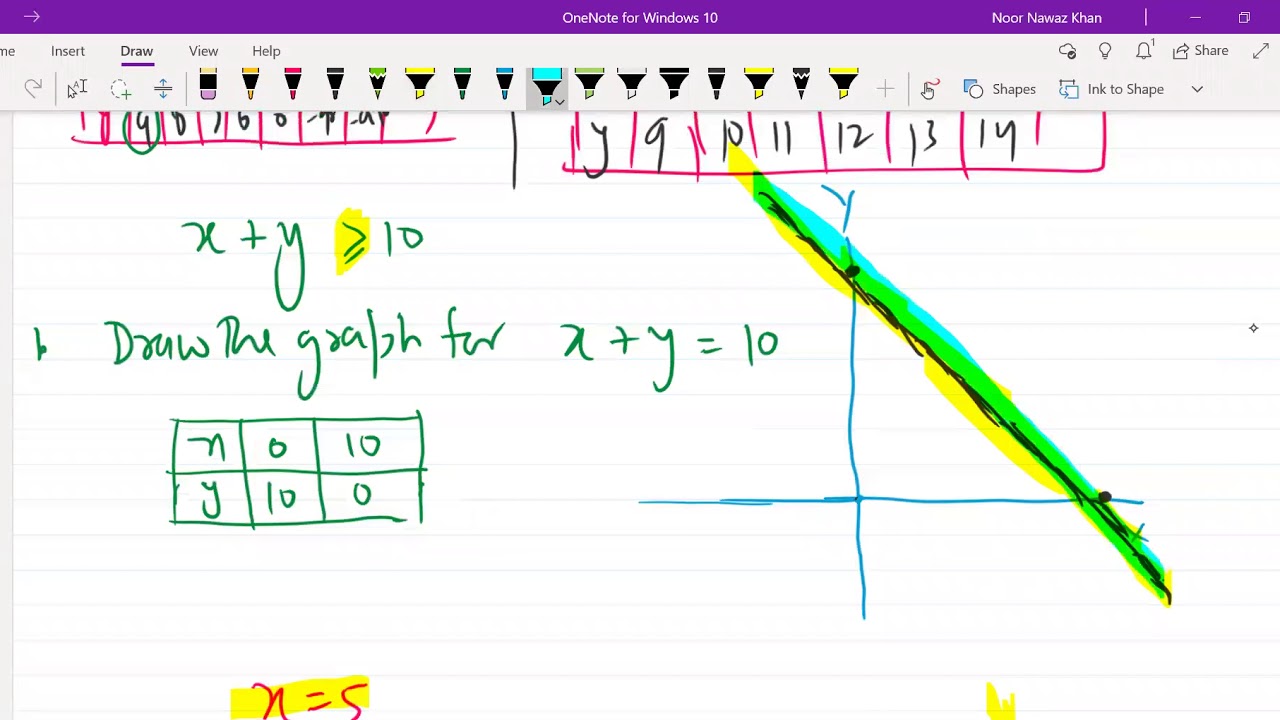 OneNote for Windows 10
Noor Nawaz Khan
me Insert Draw View Help
Share
Shapes
Ink to Shape
y 9 10 11 12 13 14
x + y ⩾ 10
Draw the graph for x + y = 10
x 0 10
y 10 0
y
x
x = 5